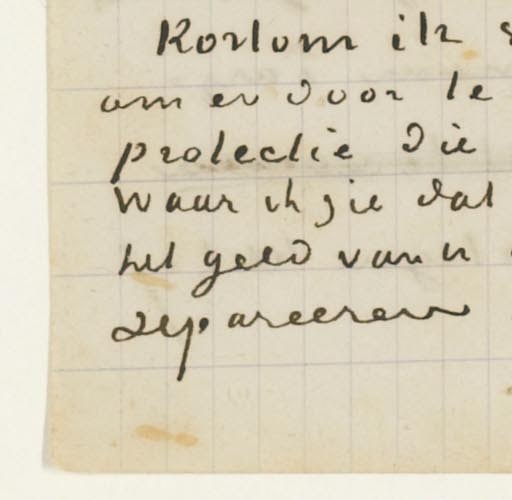 Kortom ik
om er door te
protectie die
waar ik zie dat
het geld van u
separeeren